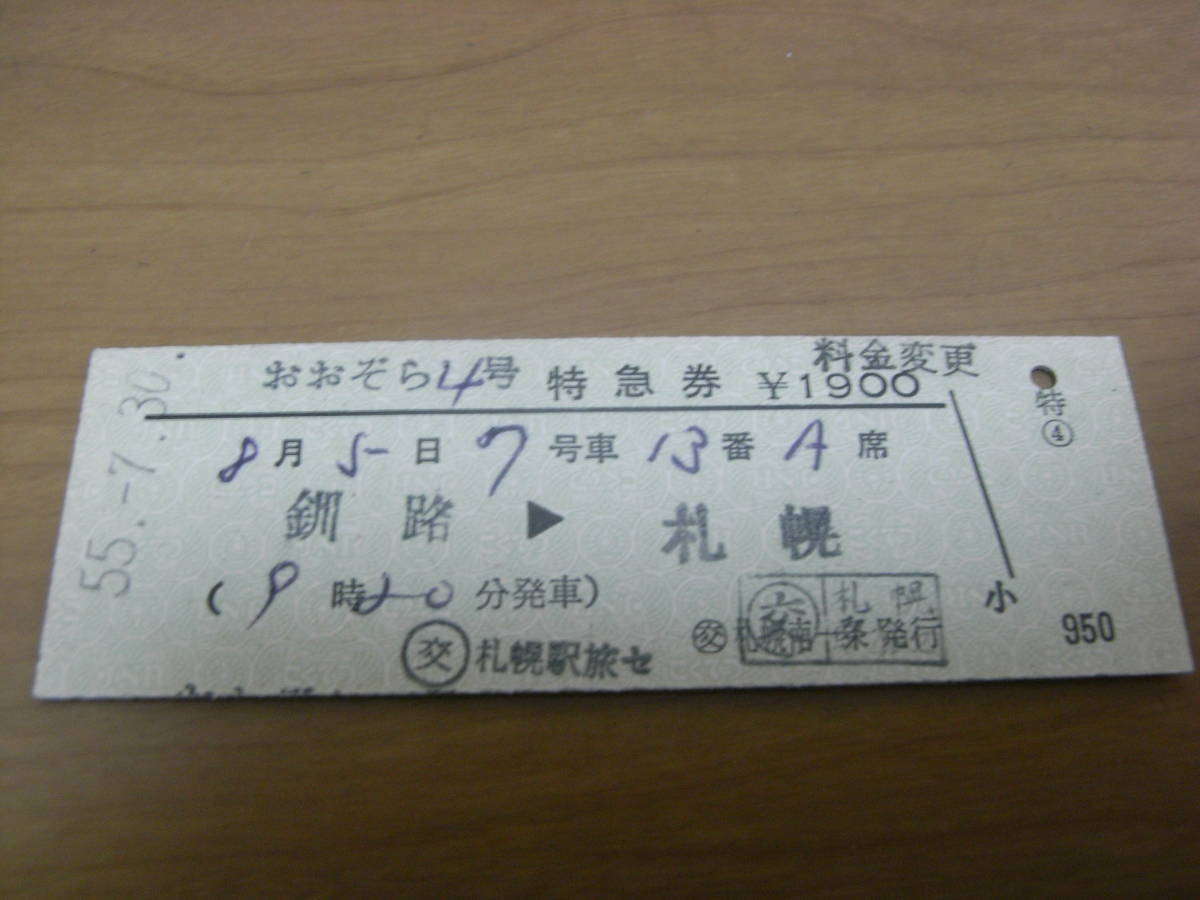 料金変更
おおぞら4号 特急券 ¥1900
8月 5日 7号車 13番 A席
釧路 ▶ 札幌
(9時20分発車)
交 札幌駅旅セ
交 札幌
発行
55.-7.30
特
④
小
950